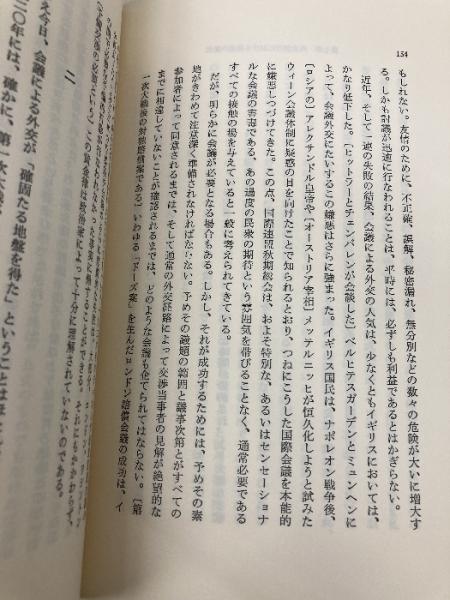 154
もしれない。友情のために、不正確、誤解、秘密漏れ、無分別などの数々の危険が大いに増大す
る。しかも討議が迅速に行なわれることは、平時には、必ずしも利益であるとはかぎらない。
近年、そして一連の失敗の結果、会議による外交の人気は、少なくともイギリスにおいては、
かなり低下した。〔ヒットラーとチェンバレンが会談した〕ベルヒテスガーデンとミュンヘンに
よって、会議外交にたいするこの嫌悪はさらに強まった。イギリス国民は、ナポレオン戦争後、
〔ロシアの〕アレクサンドル皇帝や〔オーストリア宰相〕メッテルニッヒが恒久化しようと試みた
ウィーン会議体制に疑惑の目を向けたことで知られるとおり、つねにこうした国際会議を本能的
に嫌悪しつづけてきた。この点、国際連盟秋期総会は、およそ特別な、あるいはセンセーショナ
ルな会議の害毒である、あの過度の民衆の期待という雰囲気を帯びることなく、通常必要である
すべての接触の場を与えていると一般に考えられてきている。
だが、明らかに会議が必要となる場合もある。しかし、それが成功するためには、予めその素
地がきわめて注意深く準備されなければならない。予めその議題の範囲と議事次第とがすべての
参加者によって同意されるまでは、そして通常の外交経路によって交渉当事者の見解が絶望的な
までに相違していないことが確認されるまでは、どのような会議も企てられてはならない。〔第
一次大戦後の対独賠償案である〕いわゆる「ドーズ案」を生んだロンドン賠償会議の成功は、イ
十分に理解されていないのである。
二
え今日、会議による外交が「確固たる地盤を得た」ということはほ
二〇年には、確かに、第一次大戦